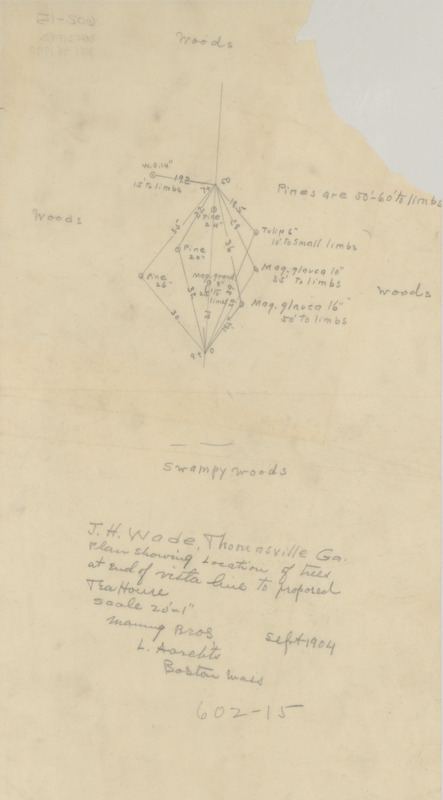 Woods
W.O. 14"
15' to limbs
19.2
Pines are 50'-60' to limbs
Woods
Pine
24"
Tulip 6"
15' to small limbs
Pine
20"
36
Mag. glauca 10"
35' to limbs
Pine
26"
Mag. grand.
8"
25' to
limbs
woods
Mag. glauca 16"
50' to limbs
Swampy woods
J. H. Wade, Thomasville Ga.
Plan showing Location of trees
at end of vista line to proposed
Tea House
Scale 20'-1"
Manning Bros.
Sept 1904
L. Archts
Boston Mass
602-15